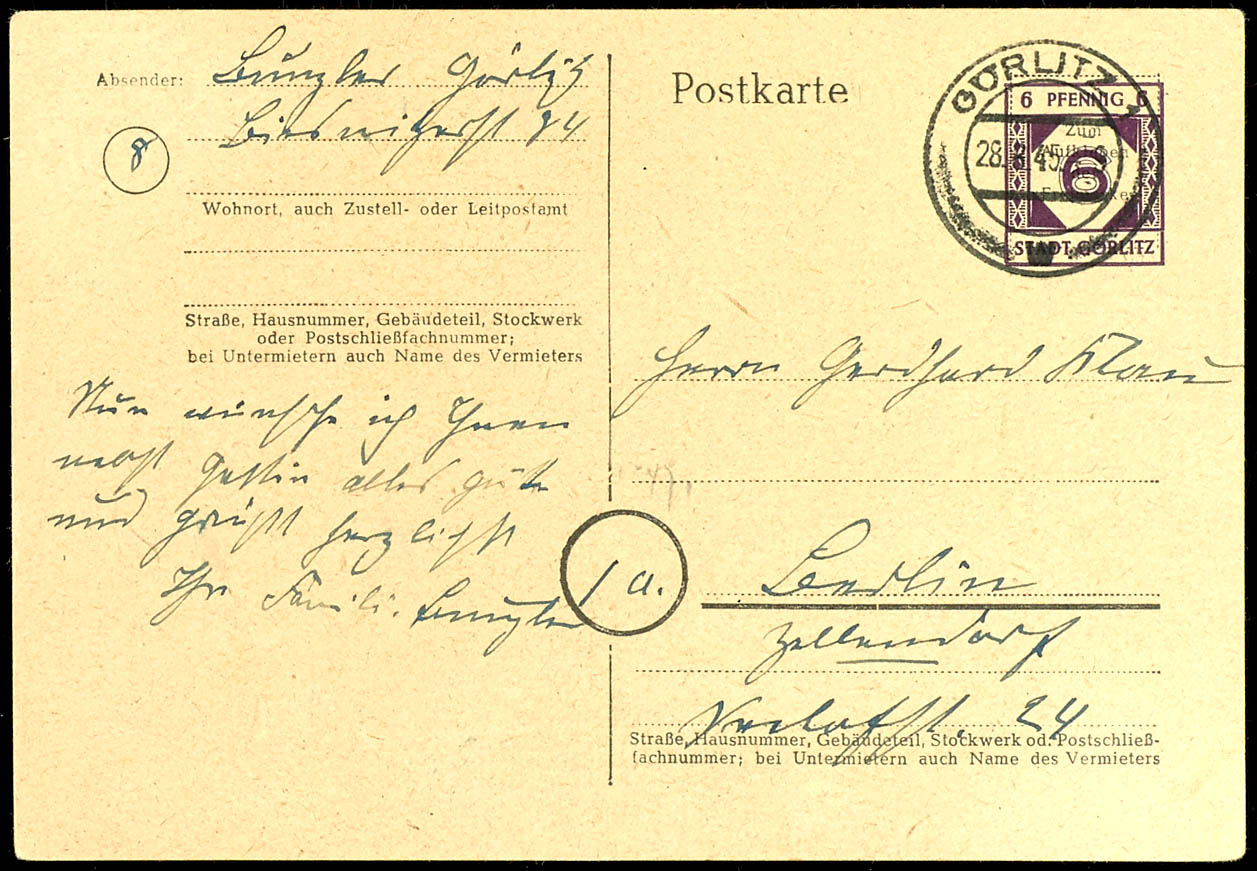 Absender: Bunzler Görlitz
24
8
Wohnort, auch Zustell- oder Leitpostamt
Straße, Hausnummer, Gebäudeteil, Stockwerk
oder Postschließfachnummer;
bei Untermietern auch Name des Vermieters
Nun wünsche ich Ihnen
nebst Gattin alles gute
und grüßt herzlichst
Ihr Famili. Bunzler
Postkarte
GÖRLITZ 1
28. 45
6 PFENNIG 6
Zum
6
STADT GÖRLITZ
Herrn Gerdhard Klau
1 a.
Berlin
Zellendorf
24
Straße, Hausnummer, Gebäudeteil, Stockwerk od. Postschließ-
fachnummer; bei Untermietern auch Name des Vermieters